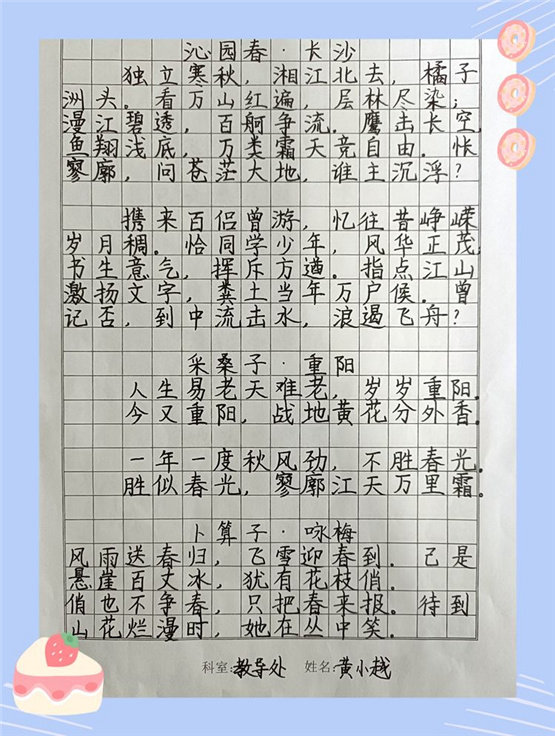 沁园春·长沙
独立寒秋，湘江北去，橘子
洲头．看万山红遍，层林尽染；
漫江碧透，百舸争流．鹰击长空，
鱼翔浅底，万类霜天竞自由．怅
寥廓，问苍茫大地，谁主沉浮？
携来百侣曾游，忆往昔峥嵘
岁月稠．恰同学少年，风华正茂；
书生意气，挥斥方遒．指点江山
激扬文字，粪土当年万户侯．曾
记否，到中流击水，浪遏飞舟？
采桑子·重阳
人生易老天难老，岁岁重阳．
今又重阳，战地黄花分外香．
一年一度秋风劲，不胜春光．
胜似春光，寥廓江天万里霜．
卜算子·咏梅
风雨送春归，飞雪迎春到．己是
悬崖百丈冰，犹有花枝俏．
俏也不争春，只把春来报．待到
山花烂漫时，她在丛中笑．
科室：教导处 姓名：黄小越